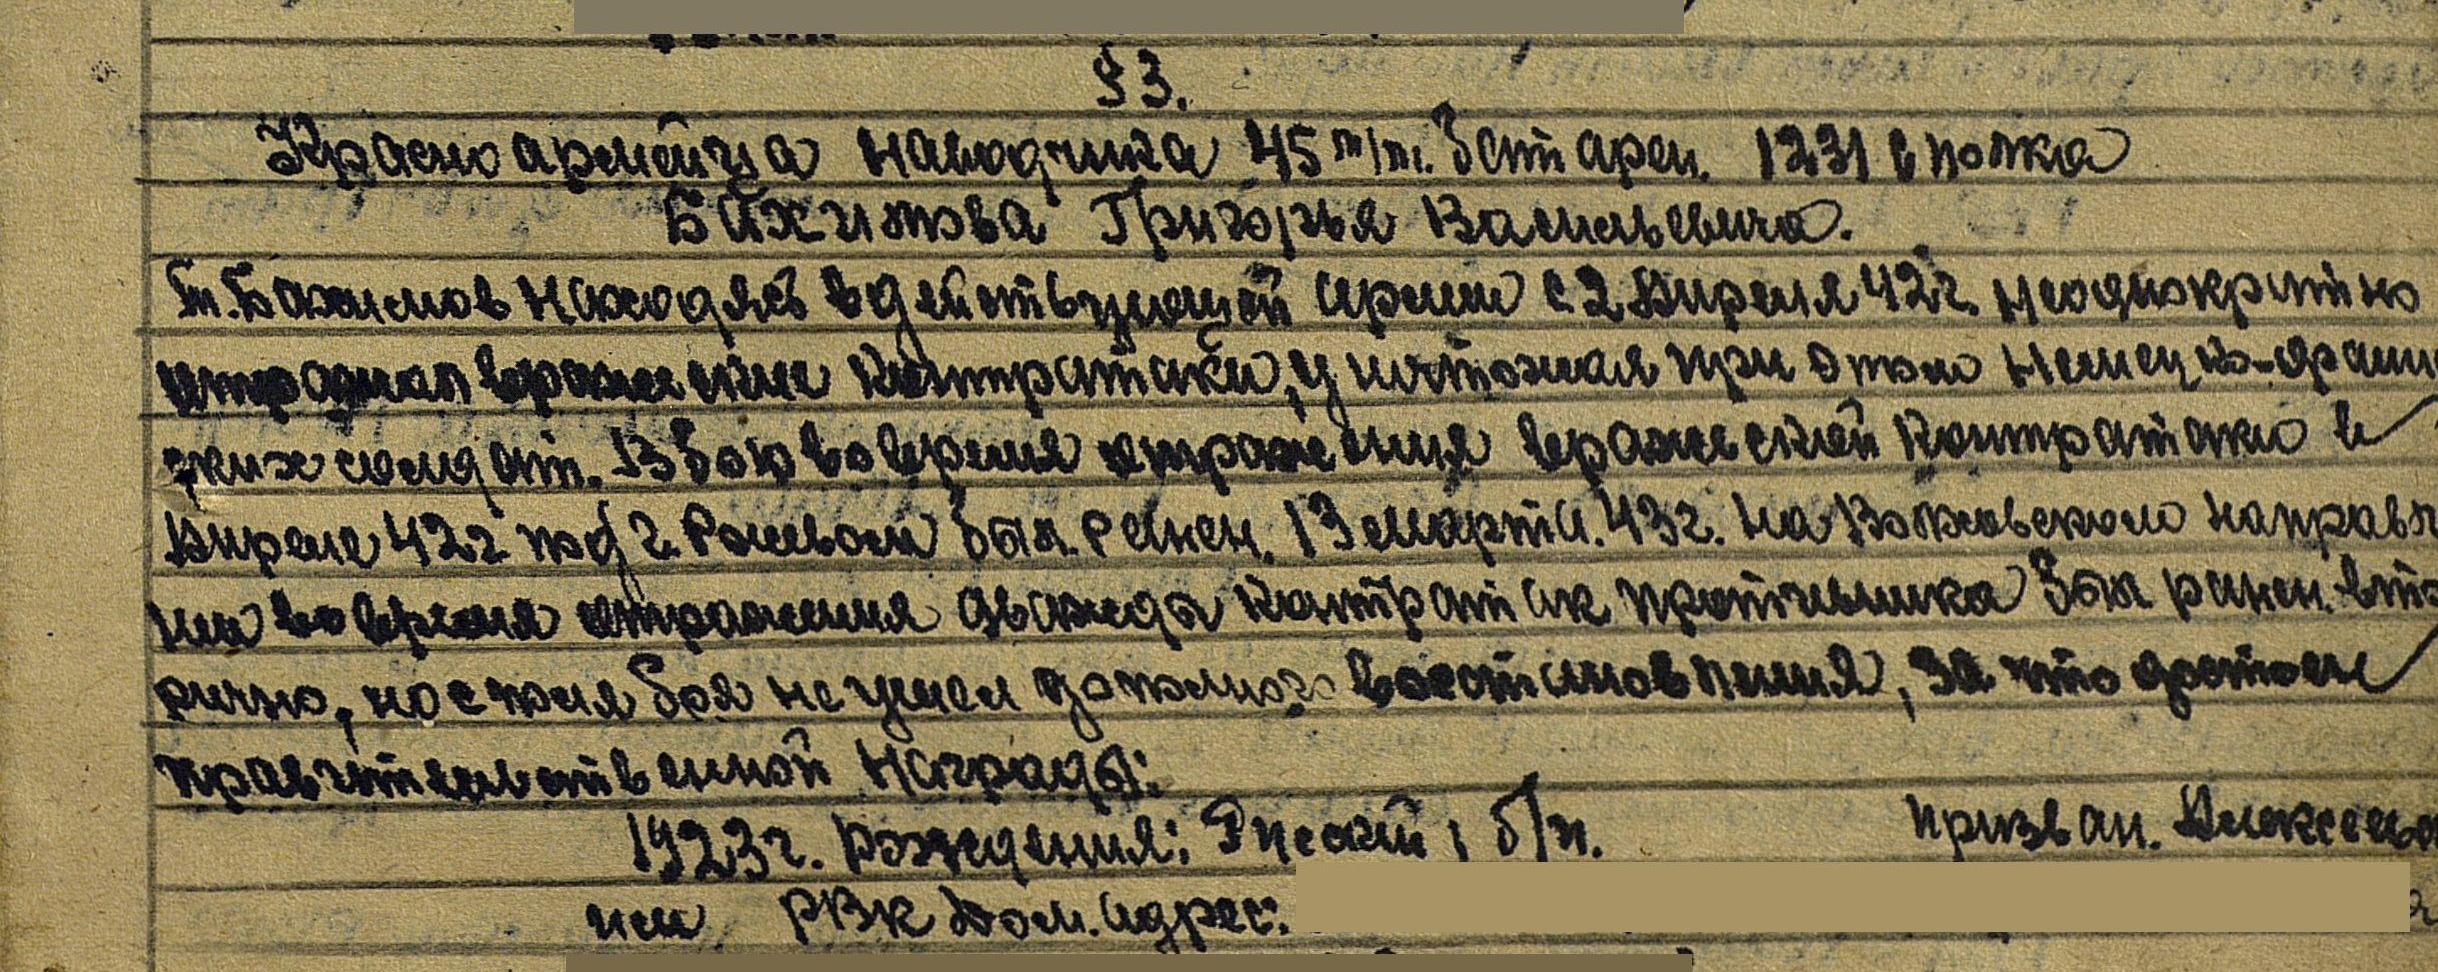 §3.
Красноармейца наводчика 45 м/м. батареи. 1231 с полка
Бажимова Григорья Васильевича.
т. Бажимов находясь в действующей армии с 2 Апреля 42г. неоднократно
отражал вражеские контратаки, уничтожая при этом немецко-фашис
ских солдат. В бою во время отражения вражеской контратаки в
Апреле 42г под г. Ржевом был ранен. 13 марта. 43г. на направле
ии во время отражения дважды контратак противника был ранен. вто
рично, но с поля боя не ушел до полного восстановления, за что достоен
правительственной награды:
1923г. рождения: Руский, б/п. призван. Алексеевс
ким РВК Дом. адрес: